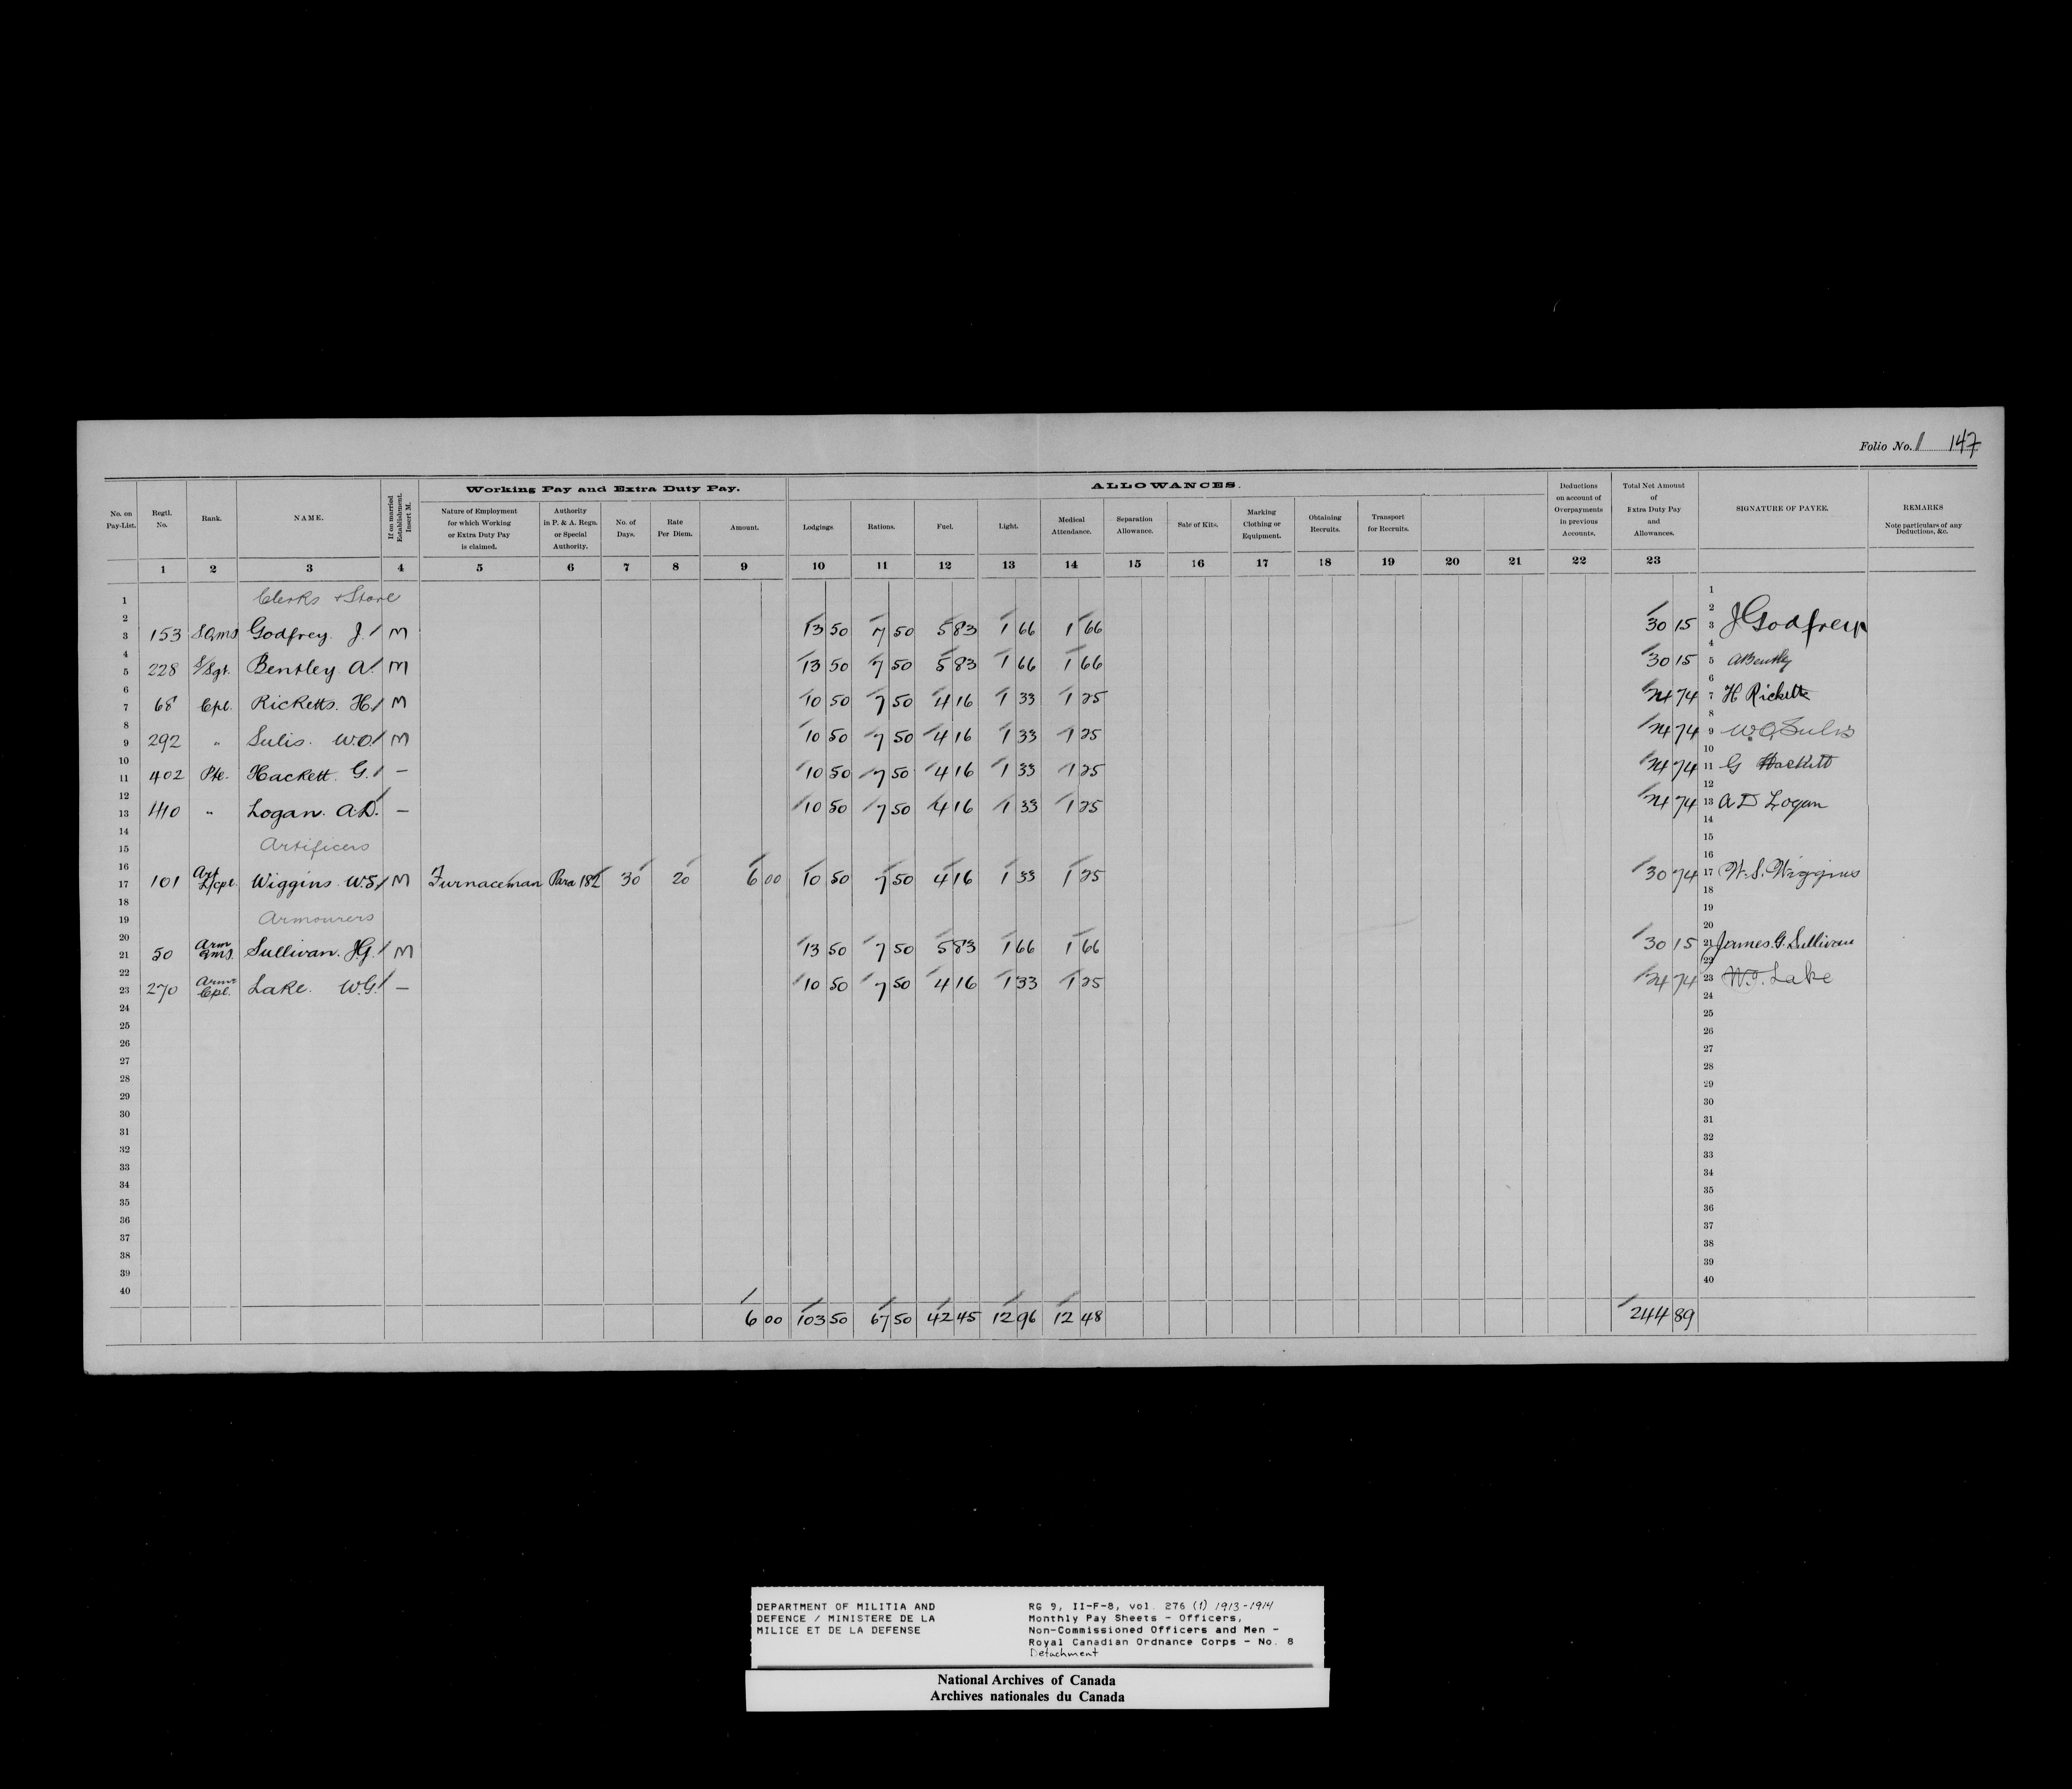 Folio No. 147
Working Pay and Extra Duty Pay.
ALLOWANCES.
No. on Pay-List.
Regtl. No.
Rank.
NAME.
If on married Establishment. Insert M.
Nature of Employment for which Working or Extra Duty Pay is claimed.
Authority in P. & A. Regn. or Special Authority.
No. of Days.
Rate Per Diem.
Amount.
Lodgings.
Rations.
Fuel.
Light.
Medical Attendance.
Separation Allowance.
Sale of Kits.
Marking Clothing or Equipment.
Obtaining Recruits.
Transport for Recruits.
Deductions on account of Overpayments in previous Accounts.
Total Net Amount of Extra Duty Pay and Allowances.
SIGNATURE OF PAYEE.
REMARKS
Note particulars of any Deductions, &c.
1 2 3 4 5 6 7 8 9 10 11 12 13 14 15 16 17 18 19 20 21 22 23
1 Clerks + Store 1
2 2
3 153 SQms Godfrey. J. M 13 50 7 50 5 83 1 66 1 66 30 15 3 J Godfrey
4 4
5 228 S/Sgt. Bentley A. M 13 50 7 50 5 83 1 66 1 66 30 15 5 A Bentley
6 6
7 68 Cpl. Ricketts. H. M 10 50 7 50 4 16 1 33 1 25 24 74 7 H Ricketts
8 8
9 292 " Sulis. W.O. M 10 50 7 50 4 16 1 33 1 25 24 74 9 W. O. Sulis
10 10
11 402 Pte. Hackett. G. – 10 50 7 50 4 16 1 33 1 25 24 74 11 G Hackett
12 12
13 410 " Logan. A.D. – 10 50 7 50 4 16 1 33 1 25 24 74 13 A D Logan
14 14
15 Artificers 15
16 16
17 101 Art L/Cpl. Wiggins W.S. M Furnaceman Para 182 30 20 6 00 10 50 7 50 4 16 1 33 1 25 30 74 17 W. S. Wiggins
18 18
19 Armourers 19
20 20
21 50 Arm Qms. Sullivan. J.G. M 13 50 7 50 5 83 1 66 1 66 30 15 21 James. G. Sullivan
22 22
23 270 Armr Cpl. Lake. W.G. – 10 50 7 50 4 16 1 33 1 25 24 74 23 W.G. Lake
24 24
25 25
26 26
27 27
28 28
29 29
30 30
31 31
32 32
33 33
34 34
35 35
36 36
37 37
38 38
39 39
40 40
6 00 103 50 67 50 42 45 12 96 12 48 244 89
DEPARTMENT OF MILITIA AND
DEFENCE / MINISTERE DE LA
MILICE ET DE LA DEFENSE
RG 9, II-F-8, vol. 276 (1) 1913-1914
Monthly Pay Sheets - Officers,
Non-Commissioned Officers and Men -
Royal Canadian Ordnance Corps - No. 8
Detachment
National Archives of Canada
Archives nationales du Canada